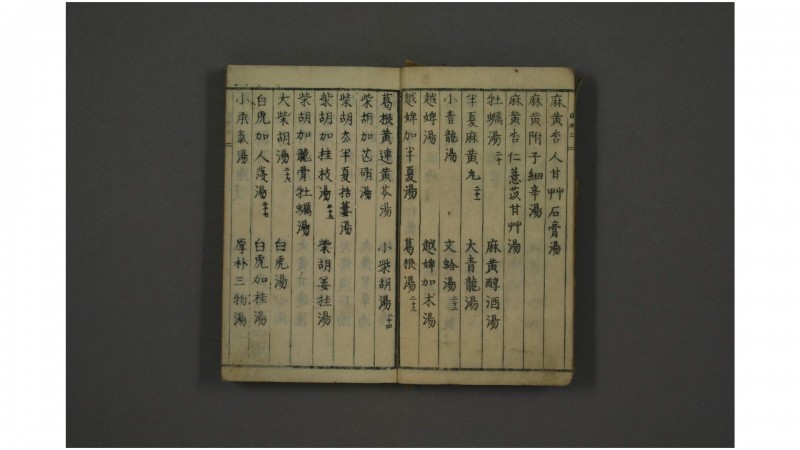 麻黄杏人甘艸石膏湯
麻黄附子細辛湯
麻黄杏仁薏苡甘艸湯
牡蠣湯二十 麻黄醇酒湯
半夏麻黄丸二十一 大青龍湯
小青龍湯 文蛤湯二十二
越婢湯 越婢加朮湯
越婢加半夏湯 葛根湯二十三
葛根黄連黄芩湯 小柴胡湯二十四
柴胡加芒硝湯
柴胡去半夏括蔞湯
柴胡加桂枝湯二十五 柴胡姜桂湯
柴胡加龍骨牡蠣湯
大柴胡湯二十六 白虎湯
白虎加人葠湯二十七 白虎加桂湯
小承氣湯 厚朴三物湯